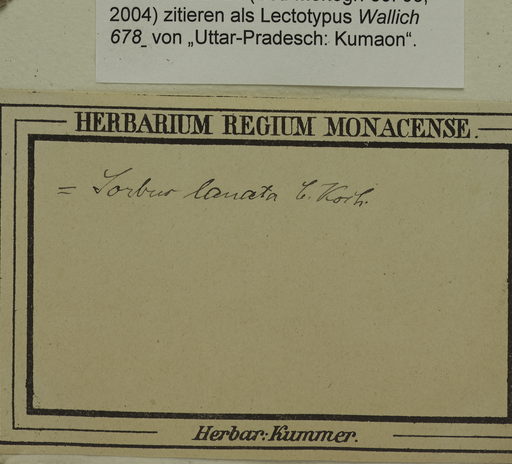 2004) zitieren als Lectotypus Wallich
678_ von „Uttar-Pradesch: Kumaon“.
HERBARIUM REGIUM MONACENSE.
= Sorbus lanata C. Koch.
Herbar: Kummer.